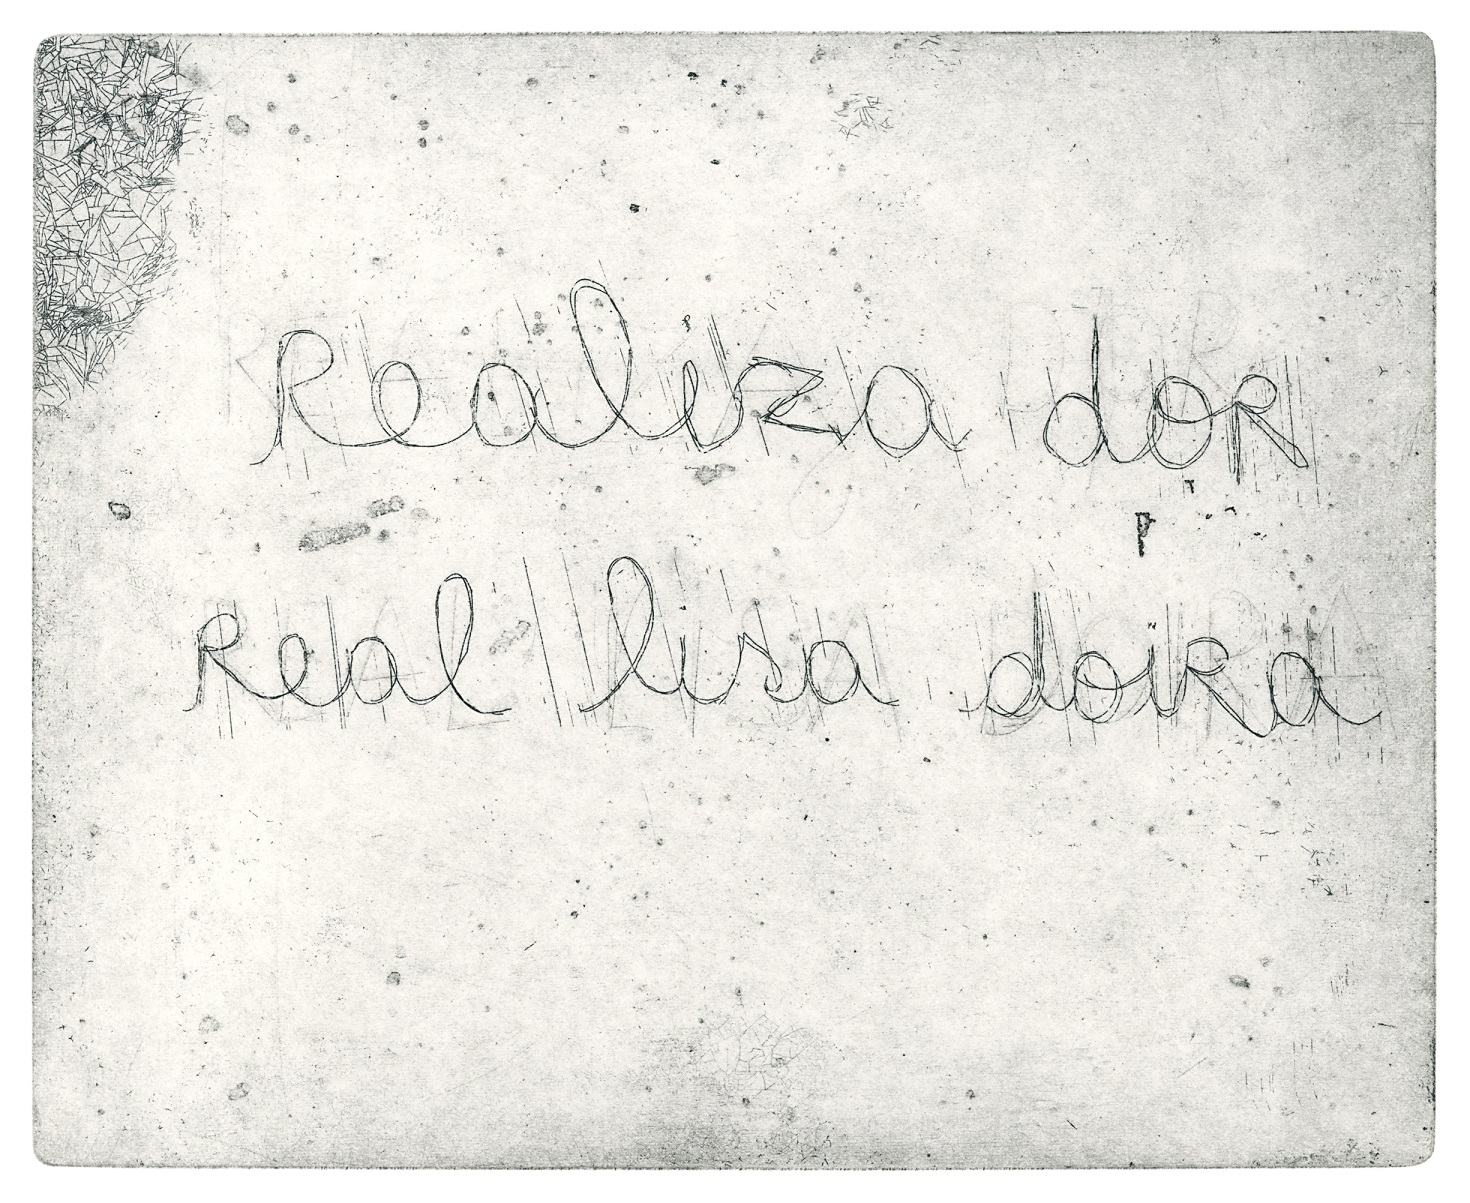 Realiza dor
Real lisa doira